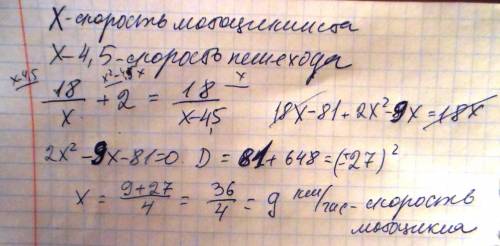 X-скорость мотоциклиста
X-4,5-скорость пешехода
x-4,5 x²-4,5x x
18/x + 2 = 18/(x-4,5) 18x-81+2x²-9x=18x
2x²-9x-81=0 D = 81+648=(27)²
x = (9+27)/4 = 36/4 = 9 км/час - скорость
мотоцикла